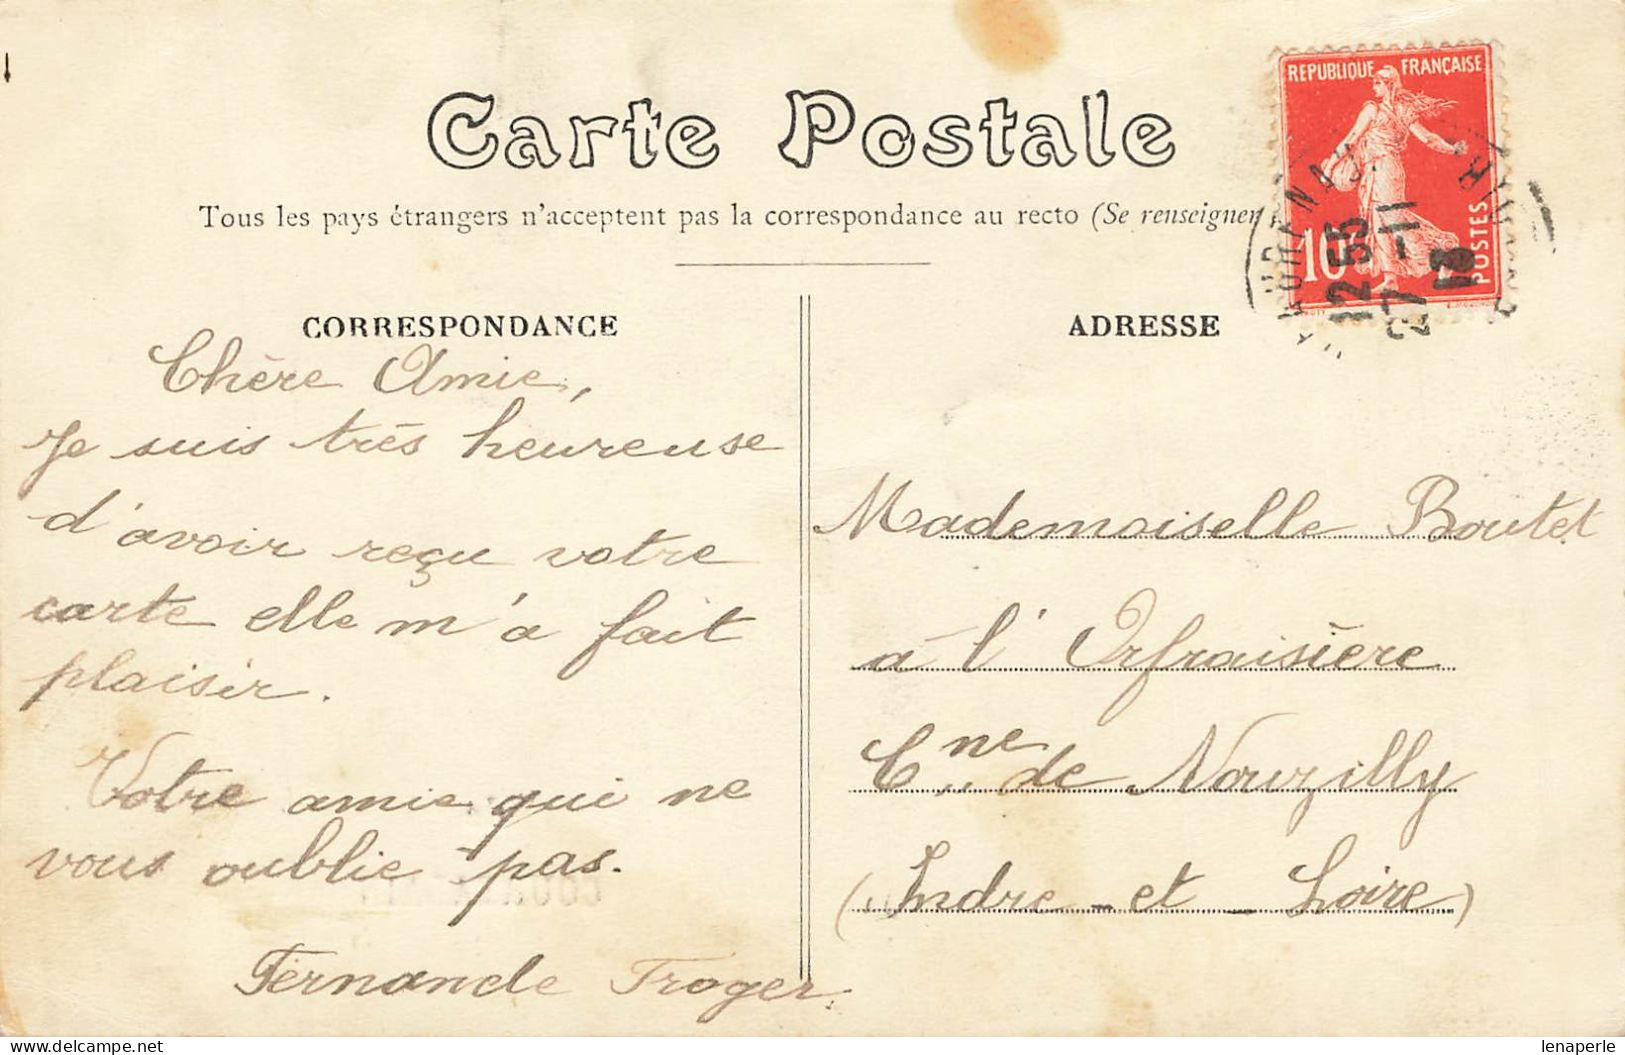 Carte Postale
Tous les pays étrangers n'acceptent pas la correspondance au recto (Se renseigner
REPUBLIQUE FRANÇAISE
10
POSTES
12 55
27 -11
13
CORRESPONDANCE
Chère Amie,
Je suis très heureuse
d'avoir reçu votre
carte elle m'a fait
plaisir.
Votre amie qui ne
vous oublie pas.
Fernande Troger
ADRESSE
Mademoiselle Boutet
à l'Orfraisière
Cne de Nouzilly
(Indre-et-Loire)
lenaperle